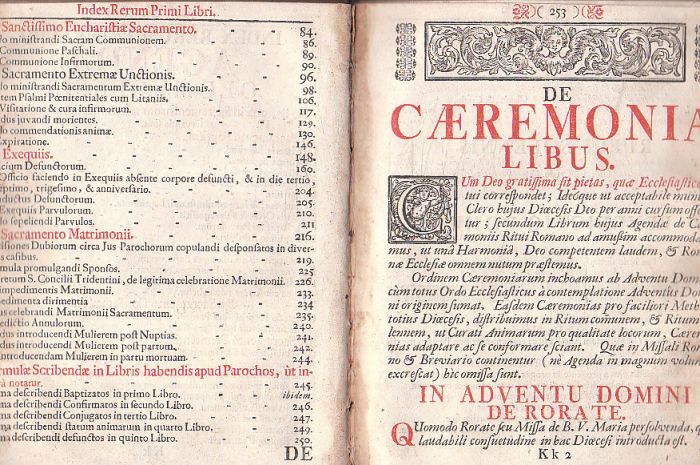 Index Rerum Primi Libri.
Sanctissimo Euchariſtiæ Sacramento. 84.
o miniſtrandi Sacram Communionem. 86.
Communione Paſchali. 89.
Communione Infirmorum. 90.
Sacramento Extremæ Unctionis. 96.
o miniſtrandi Sacramentum Extremæ Unctionis. 98.
tem Pſalmi Pœnitentiales cum Litaniis. 106.
Viſitatione & cura infirmorum. 117.
dus juvandi morientes. 129.
do commendationis animæ. 130.
Expiratione. 146.
Exequiis. 148.
icium Defunctorum. 160.
Officio faciendo in Exequiis abſente corpore defuncti, & in die tertio,
eptimo, trigeſimo, & anniverſario. 204.
nductus Defunctorum. 205.
Exequiis Parvulorum. 210.
do ſepeliendi Parvulos. 211.
Sacramento Matrimonii. 216.
iſiones Dubiorum circa Jus Parochorum copulandi deſponſatos in diver-
is caſibus. 219.
rmula promulgandi Sponſos. 225
cretum S. Concilii Tridentini, de legitima celebratione Matrimonii. 226.
impedimentis Matrimonii. 233.
pedimenta dirimentia 234
us celebrandi Matrimonii Sacramentum. 235.
edictio Annulorum. 240.
dus introducendi Mulierem poſt Nuptias. 241.
dus introducendi Mulierem poſt partum. 242.
introducendam Mulierem in partu mortuam. 244.
rmulæ Scribendæ in Libris habendis apud Parochos, ut in-
rà notatur. 245.
ma deſcribendi Baptizatos in primo Libro. ibidem.
ma deſcribendi Confirmatos in ſecundo Libro. 246.
ma deſcribendi Conjugatos in tertio Libro. 247.
ma deſcribendi ſtatum animarum in quarto Libro. 249.
ma deſcribendi defunctos in quinto Libro. 250.
DE
)( 253 )(
DE
CÆREMONIA
LIBUS.
CUm Deo gratiſſima ſit pietas, quæ Eccleſiaſtic
tui correſpondet; Ideóque ut acceptabile mun
Clero hujus Diœceſis Deo per anni curſum offe
tur; ſecundum Librum hujus Agendæ de Cæ
moniis Ritui Romano ad amuſſim accommod
mus, ut unâ Harmoniâ, Deo competentem laudem, & Ro
næ Eccleſiæ omnem nutum præſtemus.
Ordinem Cæremoniarum inchoamus ab Adventu Domi
cùm totus Ordo Eccleſiaſticus à contemplatione Adventus Do
ni originem ſumat. Eaſdem Cæremonias pro faciliori Meth
totius Diœceſis, diſtribuimus in Ritum communem, & Ritum
lennem, ut Curati Animarum pro qualitate locorum, Cære
nias adaptare ac ſe conformare ſciant. Quæ in Miſſali Ro
no & Breviario continentur (nè Agenda in magnum volum
excreſcat) hic omiſſa ſunt.
IN ADVENTU DOMINI
DE RORATE.
QUomodo Rorate ſeu Miſſa de B. V. Maria perſolvenda, q
laudabili conſuetudine in hac Diœceſi introducta eſt.
Kk 2